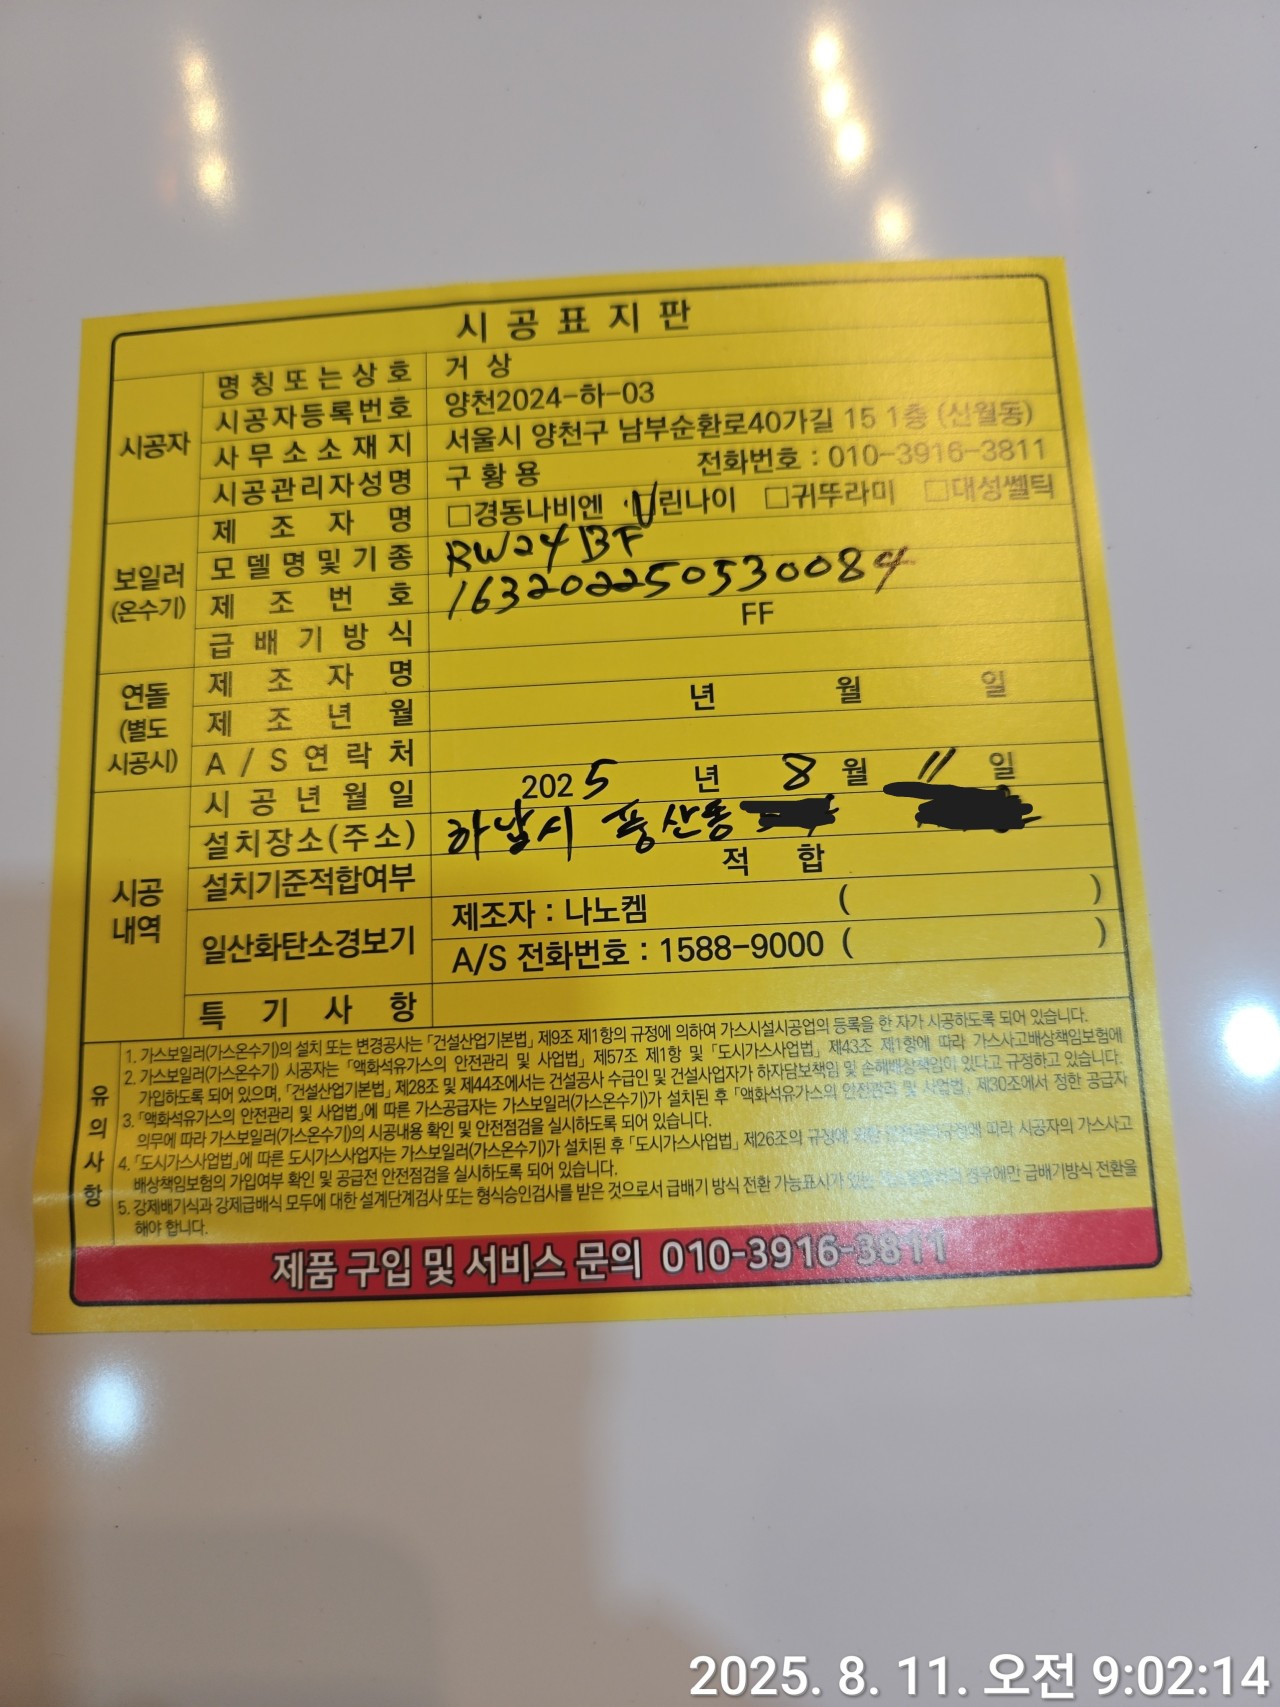 시공표지판
시공자
명칭또는상호 거 상
시공자등록번호 양천2024-하-03
사무소소재지 서울시 양천구 남부순환로40가길 15 1층 (신월동)
시공관리자성명 구황용 전화번호 : 010-3916-3811
보일러
(온수기)
제조자명 □경동나비엔 □린나이 □귀뚜라미 □대성쎌틱
모델명및기종 RW24BF
제조번호 163202250530084
급배기방식 FF
연돌
(별도
시공시)
제조자명
제조년월 년 월 일
A/S연락처
시공
내역
시공년월일 2025 년 8 월 11 일
설치장소(주소) 하남시 풍산동
설치기준적합여부 적 합
일산화탄소경보기 제조자 : 나노켐 ( )
A/S 전화번호 : 1588-9000 ( )
특기사항
유의사항
1. 가스보일러(가스온수기)의 설치 또는 변경공사는 「건설산업기본법」 제9조 제1항의 규정에 의하여 가스시설시공업의 등록을 한 자가 시공하도록 되어 있습니다.
2. 가스보일러(가스온수기) 시공자는 「액화석유가스의 안전관리 및 사업법」 제57조 제1항 및 「도시가스사업법」 제43조 제1항에 따라 가스사고배상책임보험에
가입하도록 되어 있으며, 「건설산업기본법」 제28조 및 제44조에서는 건설공사 수급인 및 건설사업자가 하자담보책임 및 손해배상책임이 있다고 규정하고 있습니다.
3. 「액화석유가스의 안전관리 및 사업법」에 따른 가스공급자는 가스보일러(가스온수기)가 설치된 후 「액화석유가스의 안전관리 및 사업법」 제30조에서 정한 공급자
의무에 따라 가스보일러(가스온수기)의 시공내용 확인 및 안전점검을 실시하도록 되어 있습니다.
4. 「도시가스사업법」에 따른 도시가스사업자는 가스보일러(가스온수기)가 설치된 후 「도시가스사업법」 제26조의 규정에 따라 시공자의 가스사고
배상책임보험의 가입여부 확인 및 공급전 안전점검을 실시하도록 되어 있습니다.
5. 강제배기식과 강제급배식 모두에 대한 설계단계검사 또는 형식승인검사를 받은 것으로서 급배기 방식 전환 가능표시가 있는 경우에만 급배기방식 전환을
해야 합니다.
제품 구입 및 서비스 문의 010-3916-3811
2025. 8. 11. 오전 9:02:14